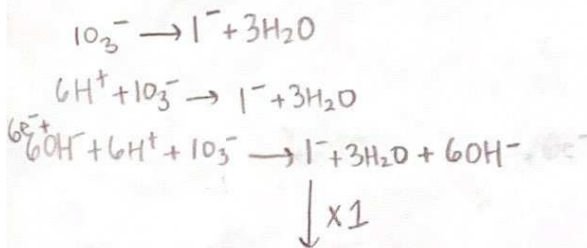 IO₃⁻ → I⁻ + 3H₂O
6H⁺ + IO₃⁻ → I⁻ + 3H₂O
6e⁻ + 6OH⁻ + 6H⁺ + IO₃⁻ → I⁻ + 3H₂O + 6OH⁻
↓ x1